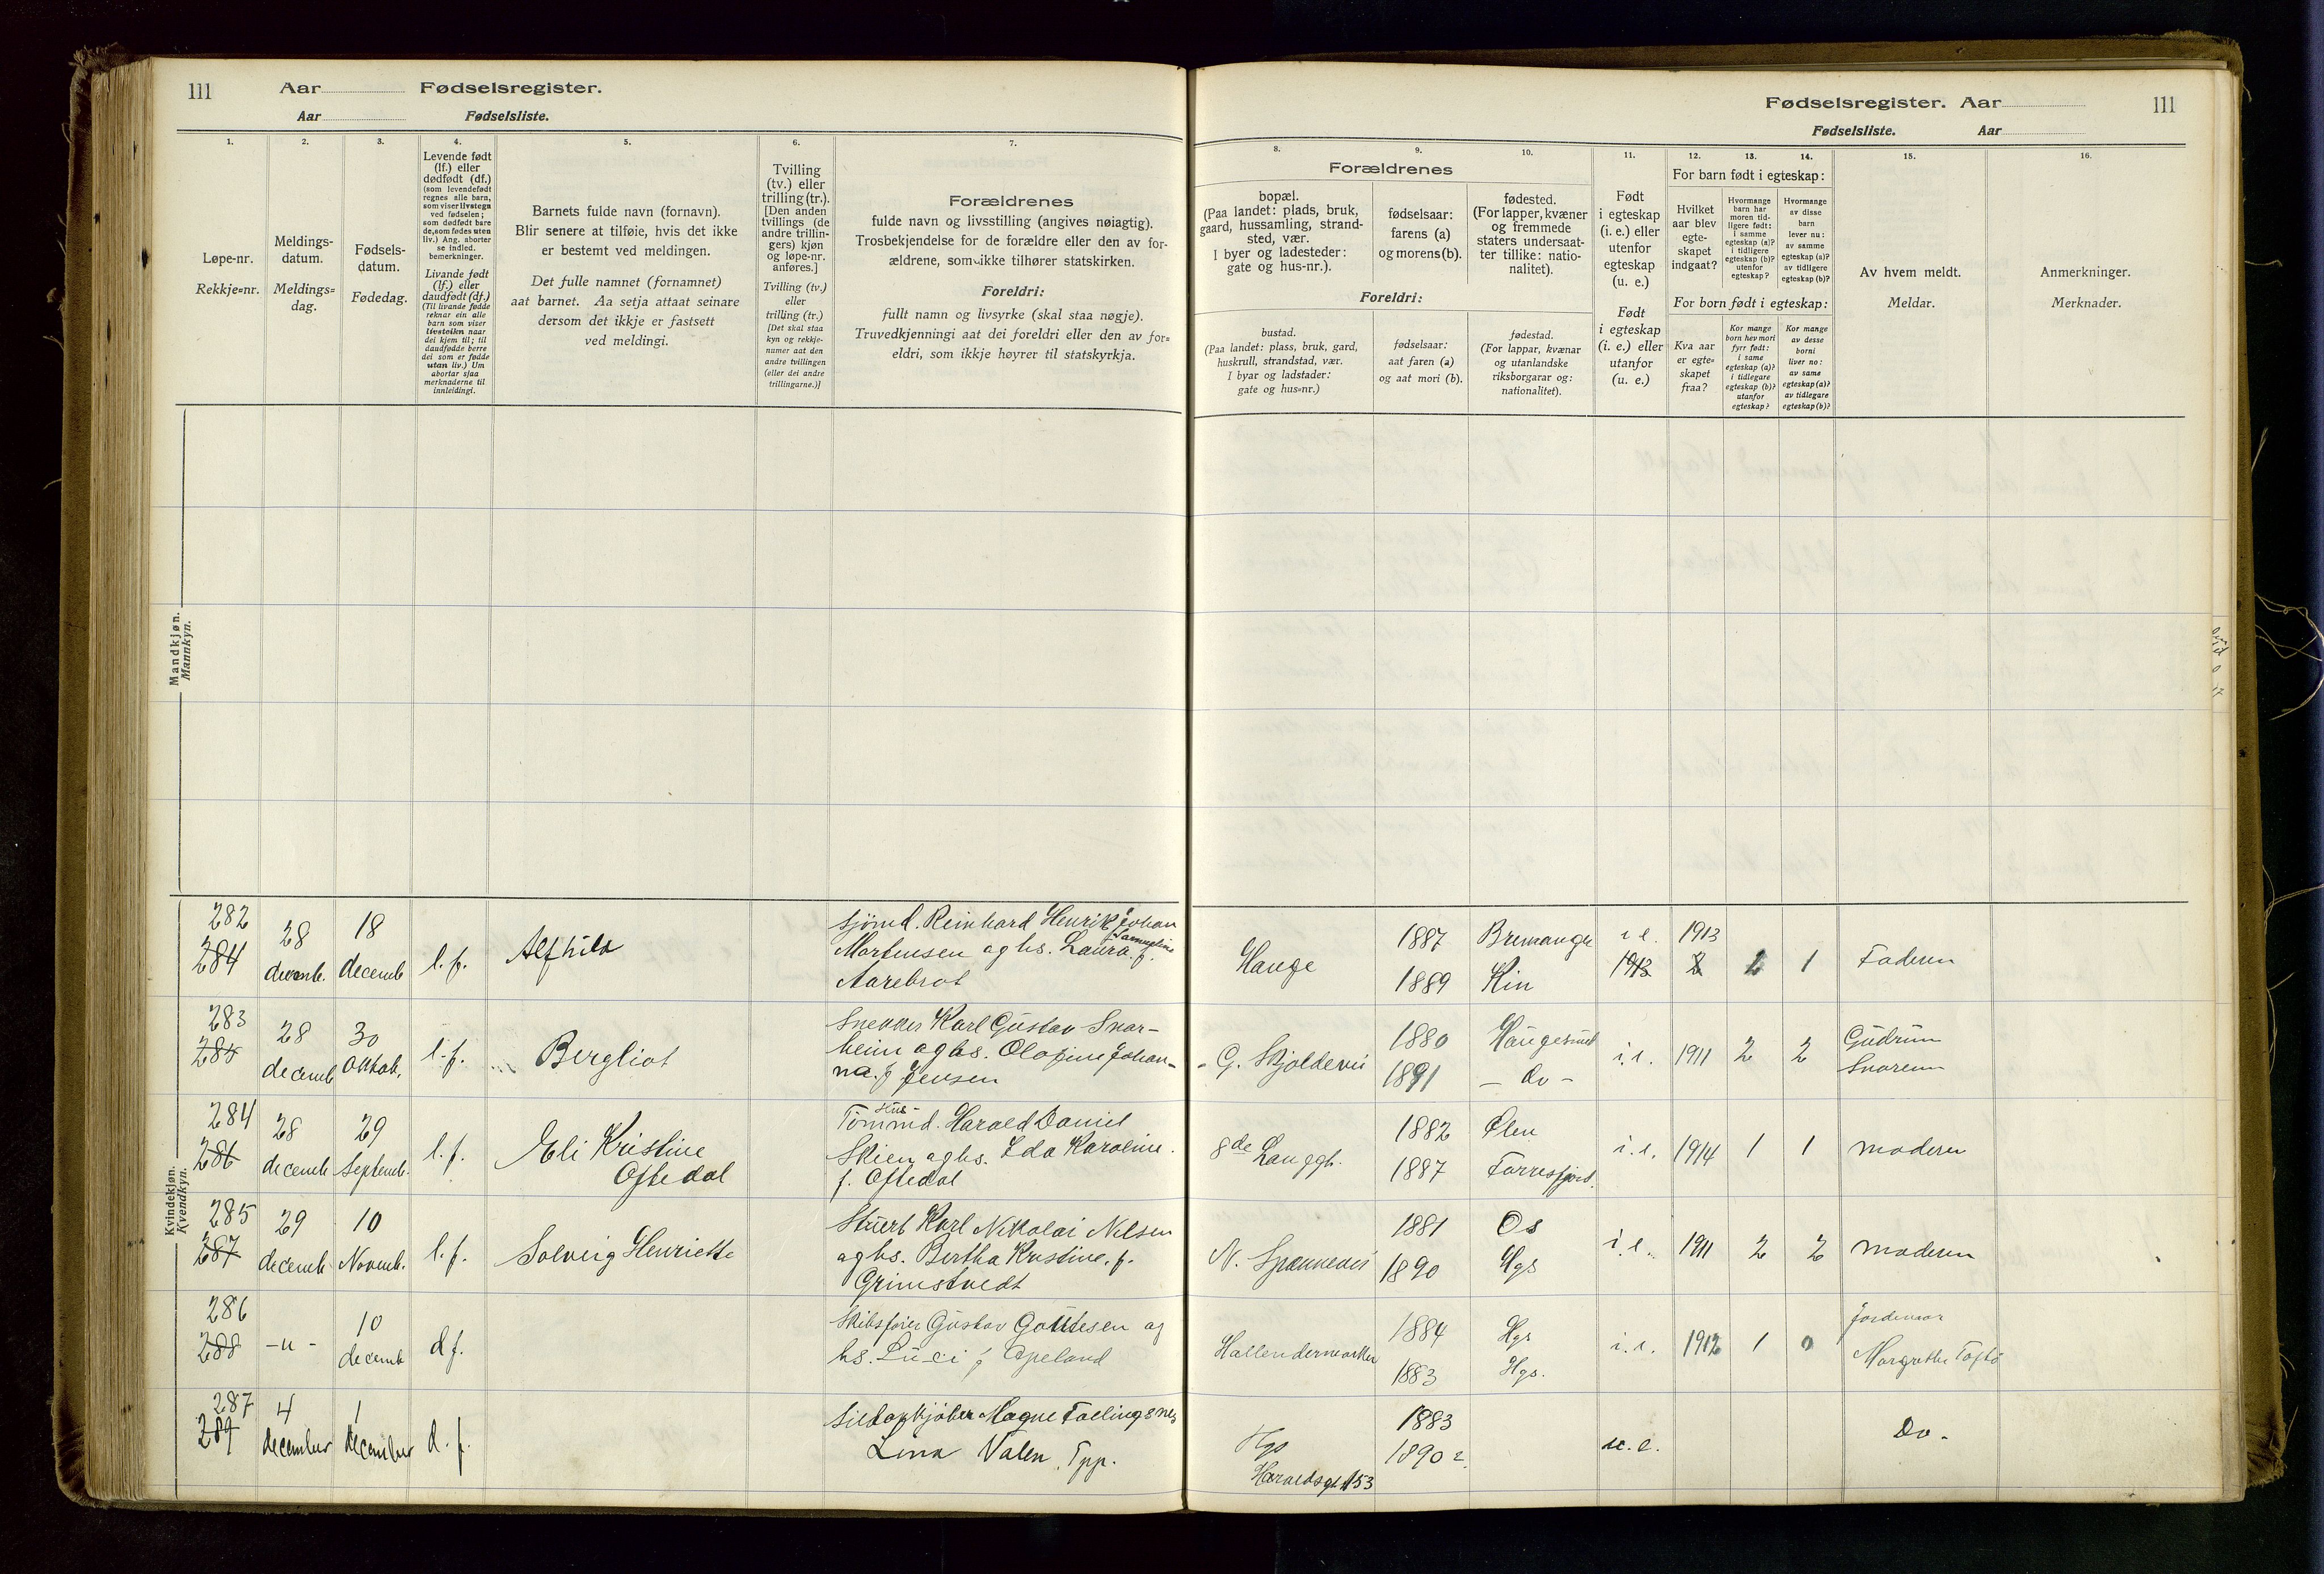 111 Aar Fødselsregister.
Aar Fødselsliste.
Fødselsregister. Aar 111
Fødselsliste. Aar
1.
Løpe-nr.
Rekkje=nr.
2.
Meldings-
datum.
Meldings=
dag.
3.
Fødsels-
datum.
Fødedag.
4.
Levende født
(lf.) eller
dødfødt (df.)
(som levendefødt
regnes alle barn,
som viser livstegn
ved fødselen;
som dødfødt bare
de, som fødes uten
liv.) Ang. aborter
se indled.
bemerkninger.
Livande født
(lf.) eller
daudfødt (df.)
(Til livande fødde
reknar ein alle
barn som viser
livsteikn naar
dei kjem til; til
daudfødde berre
dei som er fødde
utan liv.) Um
abortar sjaa
merknaderne til
innleidingi.
5.
Barnets fulde navn (fornavn).
Blir senere at tilføie, hvis det ikke
er bestemt ved meldingen.
Det fulle namnet (fornamnet)
aat barnet. Aa setja attaat seinare
dersom det ikkje er fastsett
ved meldingi.
6.
Tvilling
(tv.) eller
trilling (tr.).
[Den anden
tvillings (de
andre trillin-
gers) kjøn
og løpe-nr.
anføres.]
Tvilling (tv.)
eller
trilling (tr.)
[Det skal staa
kyn og rekkje-
numer aat den
andre tvillingen
(eller dei andre
trillingarne.)]
7.
Forældrenes
fulde navn og livsstilling (angives nøiagtig).
Trosbekjendelse for de forældre eller den av for-
ældrene, som ikke tilhører statskirken.
Foreldri:
fullt namn og livsyrke (skal staa nøgje).
Truvedkjenningi aat dei foreldri eller den av for=
eldri, som ikkje høyrer til statskyrkja.
8.
Forældrenes
bopæl.
(Paa landet: plads, bruk,
gaard, hussamling, strand-
sted, vær.
I byer og ladesteder:
gate og hus-nr.).
Foreldri:
bustad.
(Paa landet: plass, bruk, gard,
huskrull, strandstad, vær.
I byar og ladstader:
gate og hus=nr.)
9.
fødselsaar:
farens (a)
og morens (b).
fødselsaar:
aat faren (a)
og aat mori (b).
10.
fødested.
(For lapper, kvæner
og fremmede
staters undersaat-
ter tillike: natio-
nalitet).
fødestad.
(For lappar, kvænar
og utanlandske
riksborgarar og:
nationalitet).
11.
Født
i egteskap
(i. e.) eller
utenfor
egteskap
(u. e.)
Født
i egteskap
(i. e.) eller
utanfor
(u. e.)
12. 13. 14.
For barn født i egteskap:
Hvilket
aar blev
egte-
skapet
indgaat?
Hvormange
barn har
moren tid-
ligere født:
i samme
egteskap (a)?
i tidligere
egteskap (b)?
utenfor
egteskap?
Hvormange
av disse
barn
lever nu:
av samme
egteskap (a)?
av tidligere
egteskap (b)?
For born født i egteskap:
Kva aar
er egte=
skapet
fraa?
Kor mange
born hev mori
fyrr født:
i same
egteskap (a)?
i tidlegare
egteskap (b)?
utanfor
egteskap?
Kor mange
av desse
borni
liver no:
av same
egteskap (a)?
av tidlegare
egteskap (b)?
15.
Av hvem meldt.
Meldar.
16.
Anmerkninger.
Merknader.
Mandkjøn.
Mannkyn.
Kvindekjøn.
Kvendkyn.
282 28 18 sjömd. Reinhard Henrik Johan 1887 Bremanger i e. 1913
284 decemb. decemb l. f. Alfhild Mortensen og hs. Laura Samueline f. Hauge 1913 2 2 1 Faderen
Aarebrot 1889 Kin
283 28 30 Snekker Karl Gustav Snar- 1880 Haugesund Gudrun
285 decemb Oktob. l. f. Bergliot heim og hs. Olafine Johan- G. Skjoldevei i. e. 1911 2 2 Snarem
na f Jensen 1891 - do -
284 28 29 Tömmd. Harald Daniel 1882 Ølen
286 decemb Septemb. l. f. Eli Kristine Skien og hs. Ida Karoline. 8de Langgt. i. e. 1914 1 1 moderen
Oftedal f. Oftedal 1887 Førresfjord.
285 29 10 Stuert Karl Nikolai Nilsen 1881 Os
287 decemb Novemb. l. f. Solveig Henriette og hs. Bertha Kristine. f. N. Spannevei i. e. 1911 2 2 moderen
Grimstvedt 1890 Hgs
286 10 Skibsfører Gustav Gautesen og 1884 Hgs Jordemor
288 - " - decemb d f. hs. Luci f Apeland i. e. 1912 1 0 Margrethe
1883 Hgs.
287 4 1 Sildopkjöber Magne 1883 Do.
289 december december d. f. Lina Valen, Hgs 1890 u. e.
Haraldsgt. 153